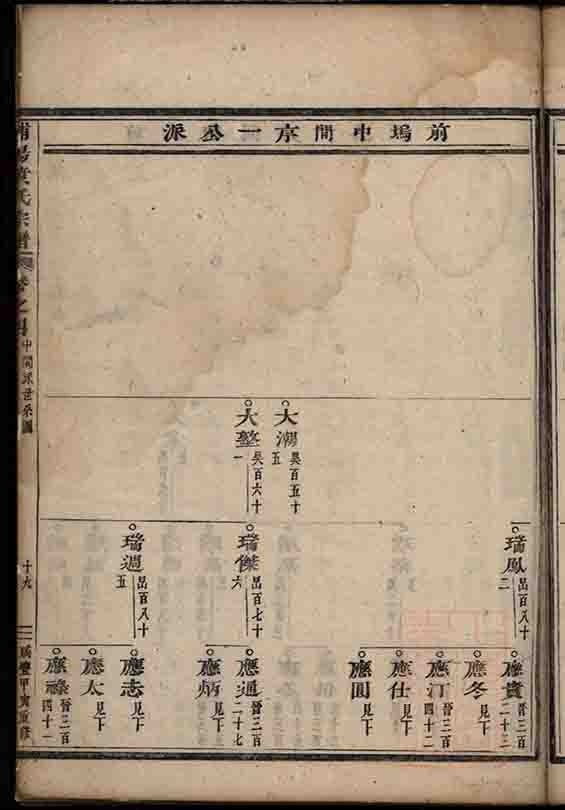 前塢中間京一公派
大潮 吳百五十五
大㙜 吳百六十一
瑞鳳 呂百八十二
瑞傑 呂百七十六
瑞週 呂百八十五
應貴 晉三百二十三
應冬 見下
應汀 晉三百四十二
應仕 見下
應圓 見下
應通 晉三百二十七
應炳 見下
應志 見下
應太 見下
應祿 晉三百四十一
氏宗譜 卷之四 中間派世系圖
十九
甲寅重修